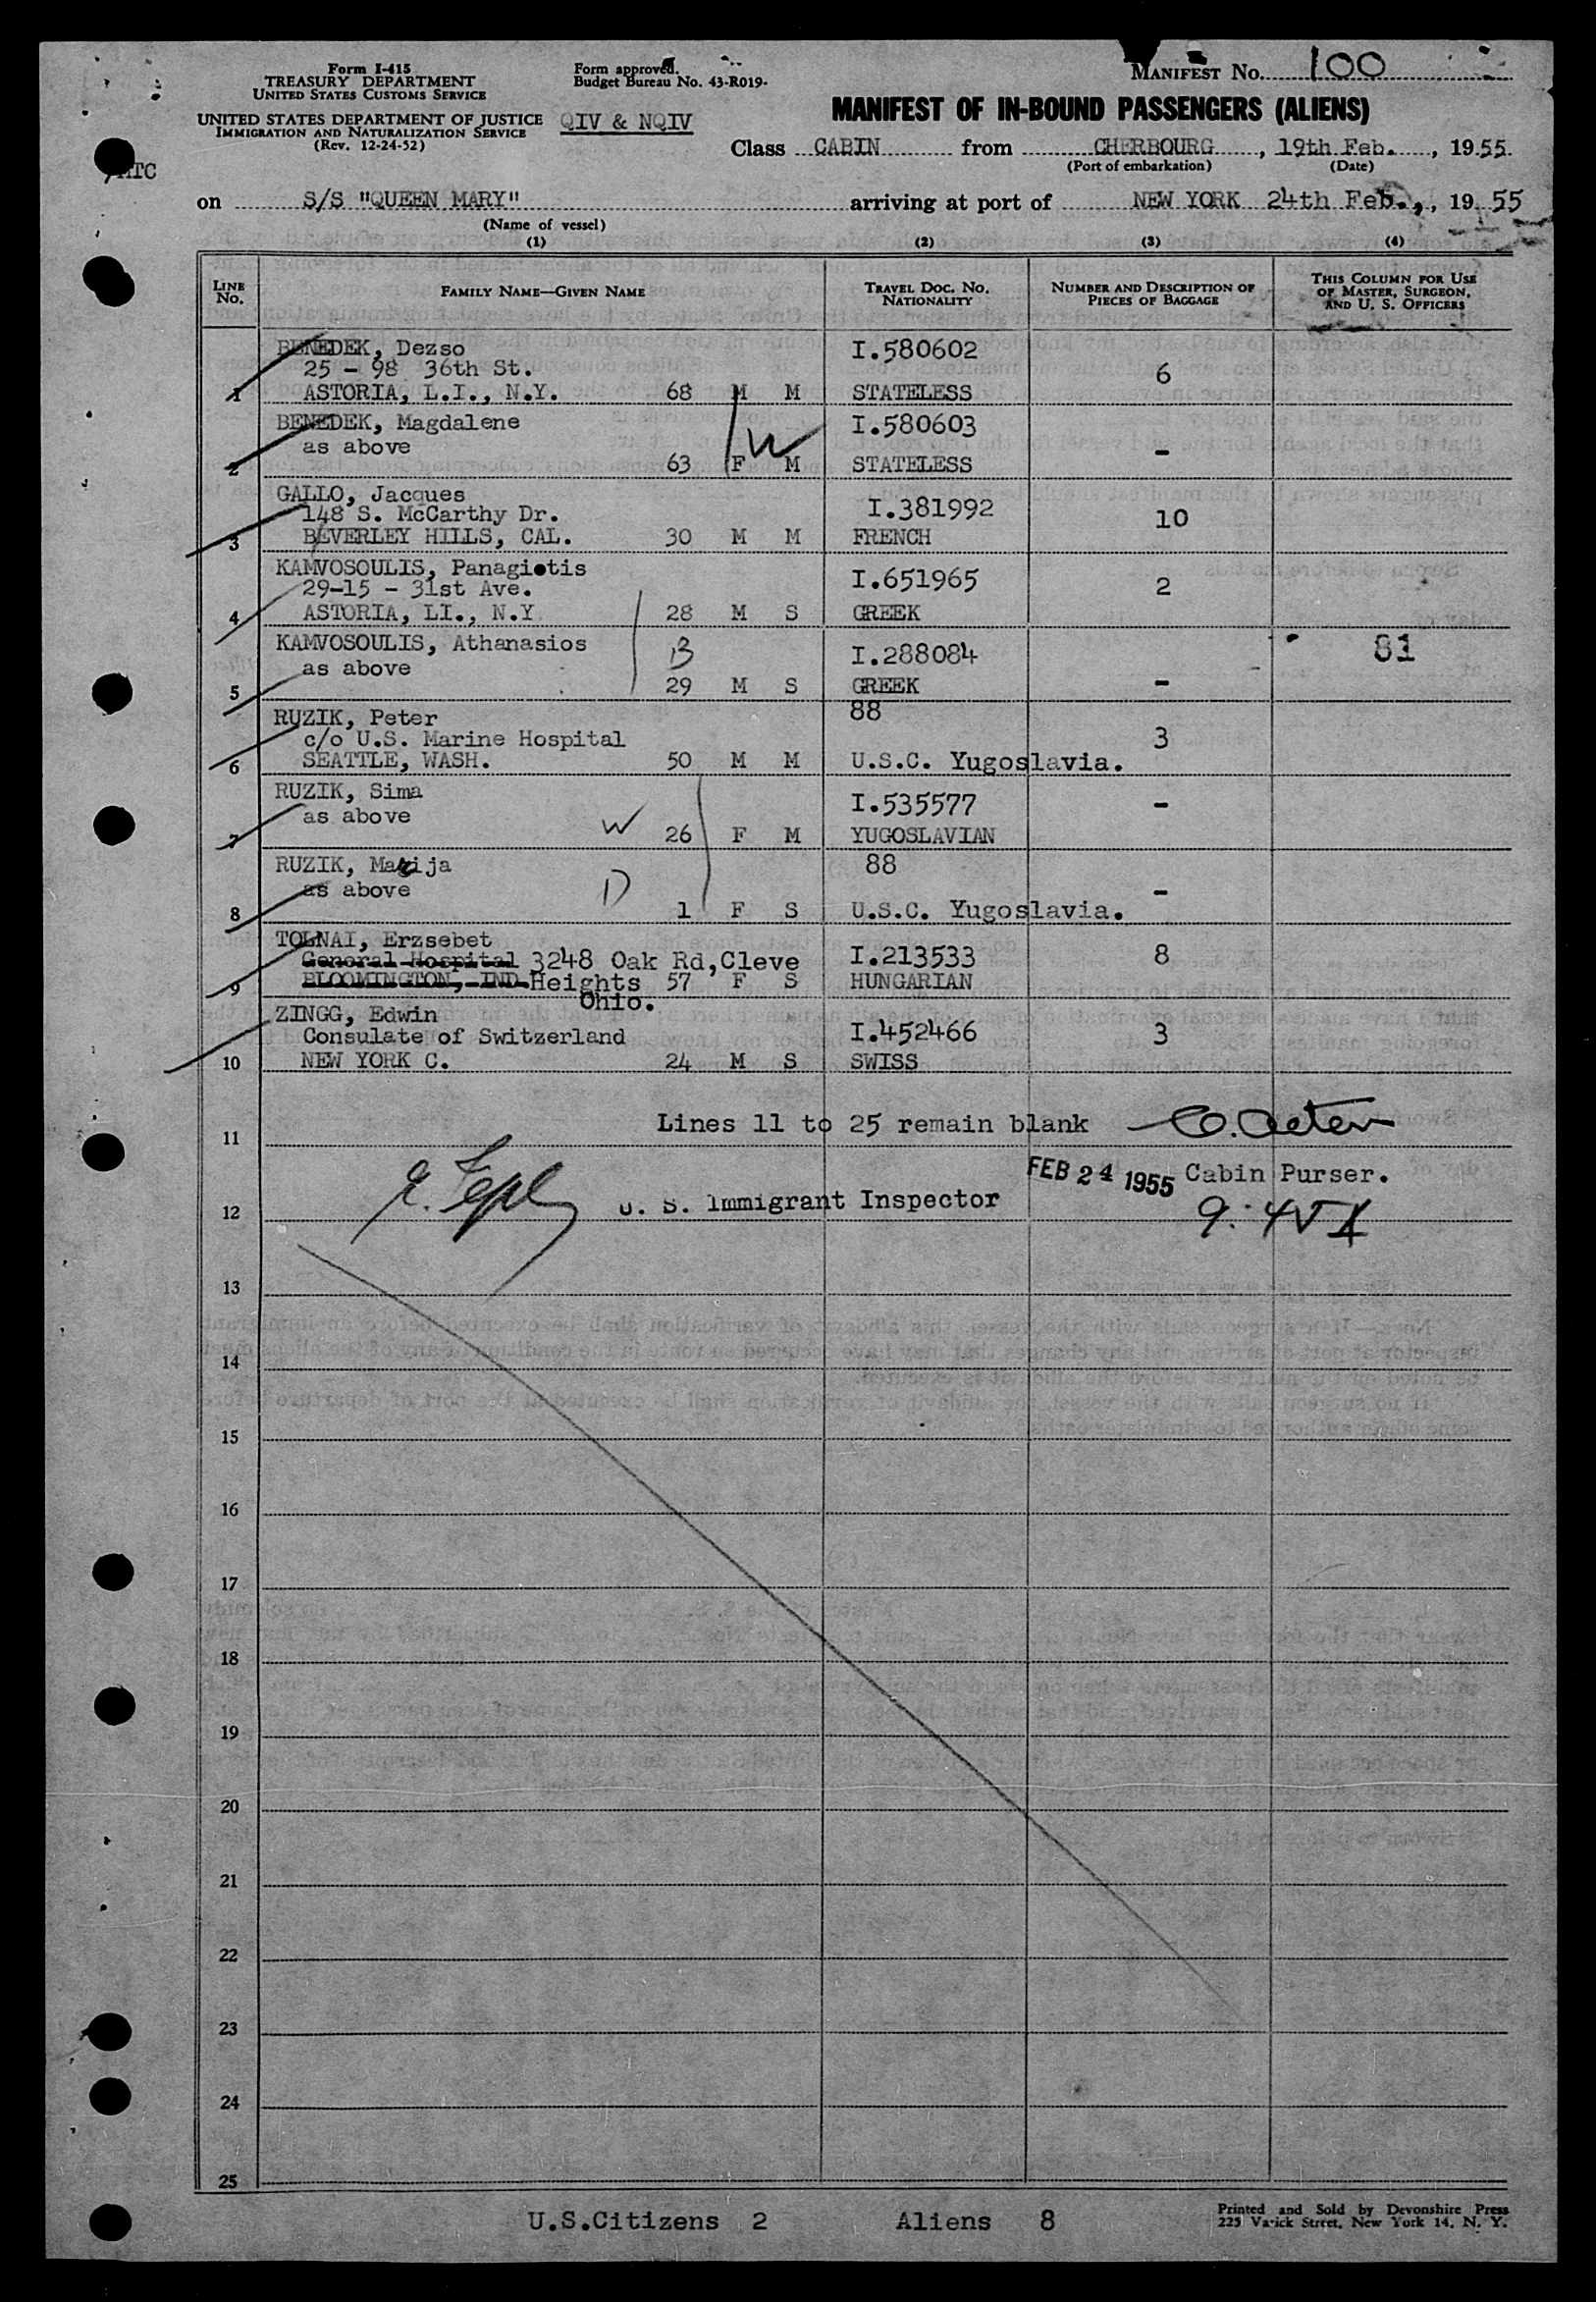 Form I-415
TREASURY DEPARTMENT
UNITED STATES CUSTOMS SERVICE
UNITED STATES DEPARTMENT OF JUSTICE
IMMIGRATION AND NATURALIZATION SERVICE
(Rev. 12-24-52)
Form approved.
Budget Bureau No. 43-R019-
QIV & NQIV
MANIFEST NO. 100
MANIFEST OF IN-BOUND PASSENGERS (ALIENS)
Class CABIN from CHERBOURG, 19th Feb., 1955.
(Port of embarkation) (Date)
on S/S "QUEEN MARY" arriving at port of NEW YORK 24th Feb., 1955
(Name of vessel)
(1) (2) (3) (4)
LINE NO. FAMILY NAME—GIVEN NAME TRAVEL DOC. NO. NATIONALITY NUMBER AND DESCRIPTION OF PIECES OF BAGGAGE THIS COLUMN FOR USE OF MASTER, SURGEON, AND U. S. OFFICERS
BENEDEK, Dezso I.580602
25 - 98 36th St. 6
1 ASTORIA, L.I., N.Y. 68 M M STATELESS
BENEDEK, Magdalene I.580603
as above W -
2 63 F M STATELESS
GALLO, Jacques I.381992
148 S. McCarthy Dr. 10
3 BEVERLEY HILLS, CAL. 30 M M FRENCH
KAMVOSOULIS, Panagiotis I.651965
29-15 - 31st Ave. 2
4 ASTORIA, LI., N.Y 28 M S GREEK
KAMVOSOULIS, Athanasios B I.288084 81
as above
5 29 M S GREEK -
RUZIK, Peter 88
c/o U.S. Marine Hospital 3
6 SEATTLE, WASH. 50 M M U.S.C. Yugoslavia.
RUZIK, Sima I.535577 -
as above W
7 26 F M YUGOSLAVIAN
RUZIK, Marija 88
as above D -
8 1 F S U.S.C. Yugoslavia.
TOLNAI, Erzsebet
General Hospital 3248 Oak Rd,Cleve I.213533 8
9 BLOOMINGTON, IND. Heights 57 F S HUNGARIAN
Ohio.
ZINGG, Edwin
Consulate of Switzerland I.452466 3
10 NEW YORK C. 24 M S SWISS
Lines 11 to 25 remain blank
11
FEB 24 1955 Cabin Purser.
12 U. S. Immigrant Inspector
13
14
15
16
17
18
19
20
21
22
23
24
25
U.S.Citizens 2 Aliens 8
Printed and Sold by Devonshire Press
225 Varick Street, New York 14, N. Y.